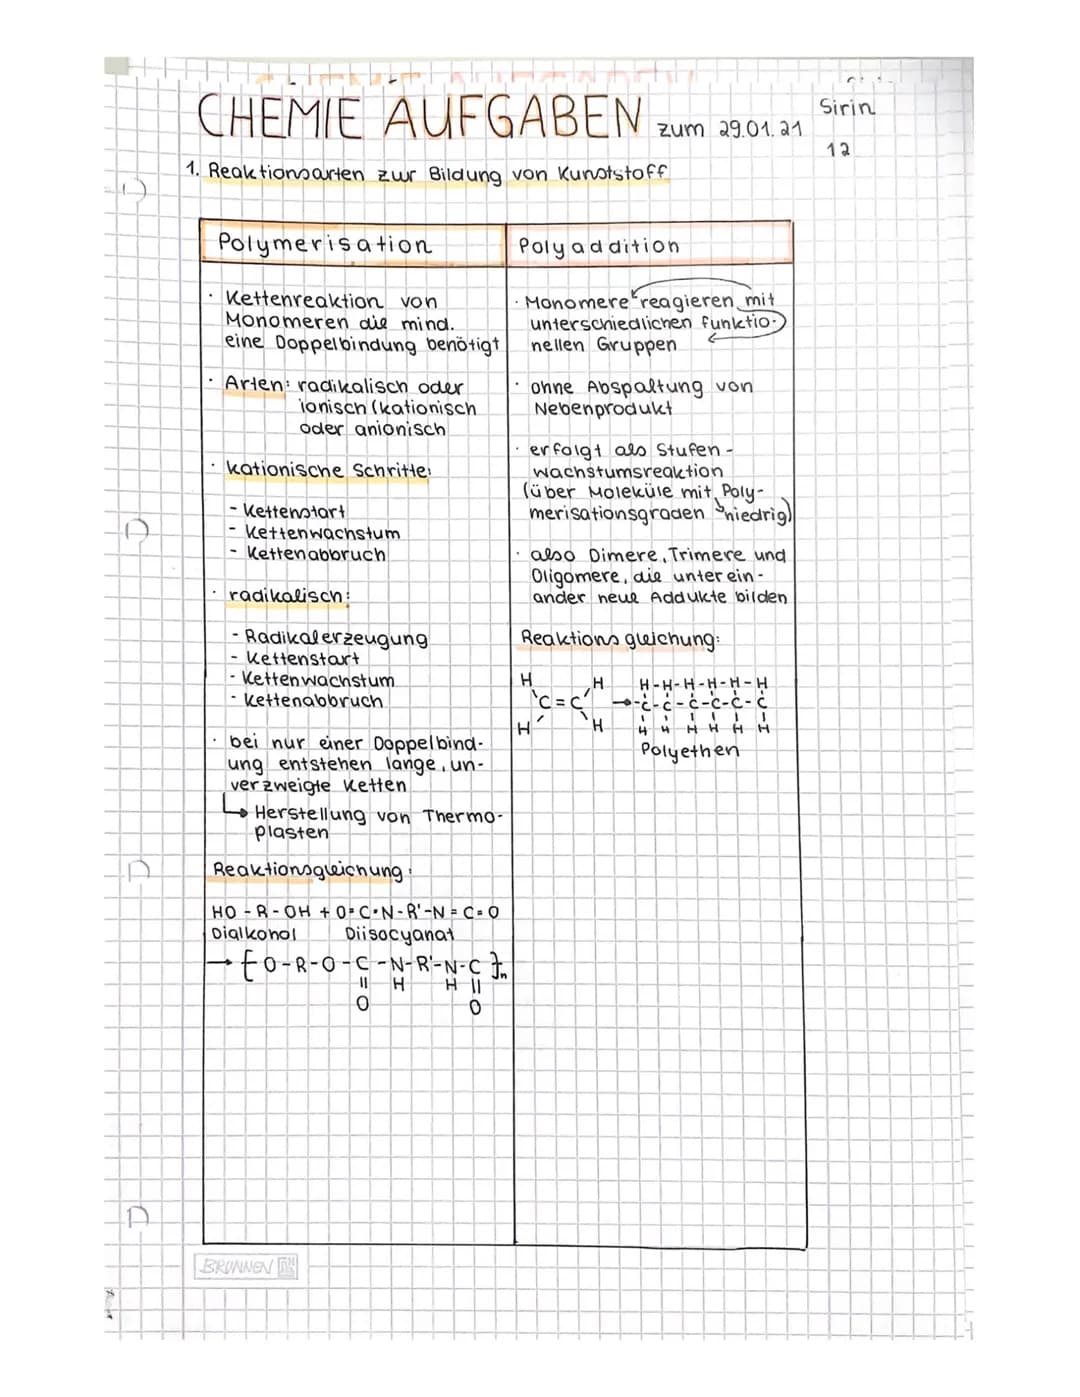 CHEMIE AUFGABEN zum 29.01.21
Sirin
12
1. Reaktionsarten zur Bildung von Kunststoff
Polymerisation
· Kettenreaktion von
Monomeren die mind.
eine Doppelbindung benötigt
· Arten: radikalisch oder
ionisch (kationisch
oder anionisch
· kationische Schritte:
- Kettenstart
- Kettenwachstum
- Kettenabbruch
· radikalisch:
- Radikalerzeugung
- Kettenstart
- Kettenwachstum
- Kettenabbruch
· bei nur einer Doppelbind-
ung entstehen lange, un-
verzweigte Ketten
↳ Herstellung von Thermo-
plasten
Reaktionsgleichung:
HO - R - OH + O=C=N-R'-N=C=O
Dialkohol Diisocyanat
→ [O-R-O-C-N-R'-N-C]n
|| H H ||
O O
Polyaddition
· Monomere reagieren mit
unterschiedlichen funktio-
nellen Gruppen
· ohne Abspaltung von
Nebenprodukt
· erfolgt als Stufen-
wachstumsreaktion
(über Moleküle mit Poly-
merisationsgraden niedrig)
· also Dimere, Trimere und
Oligomere, die unterein-
ander neue Addukte bilden
Reaktionsgleichung:
H H H-H-H-H-H-H
C=C →-C-C-C-C-C-C
H H H H H H H H
Polyethen
BRUNNEN